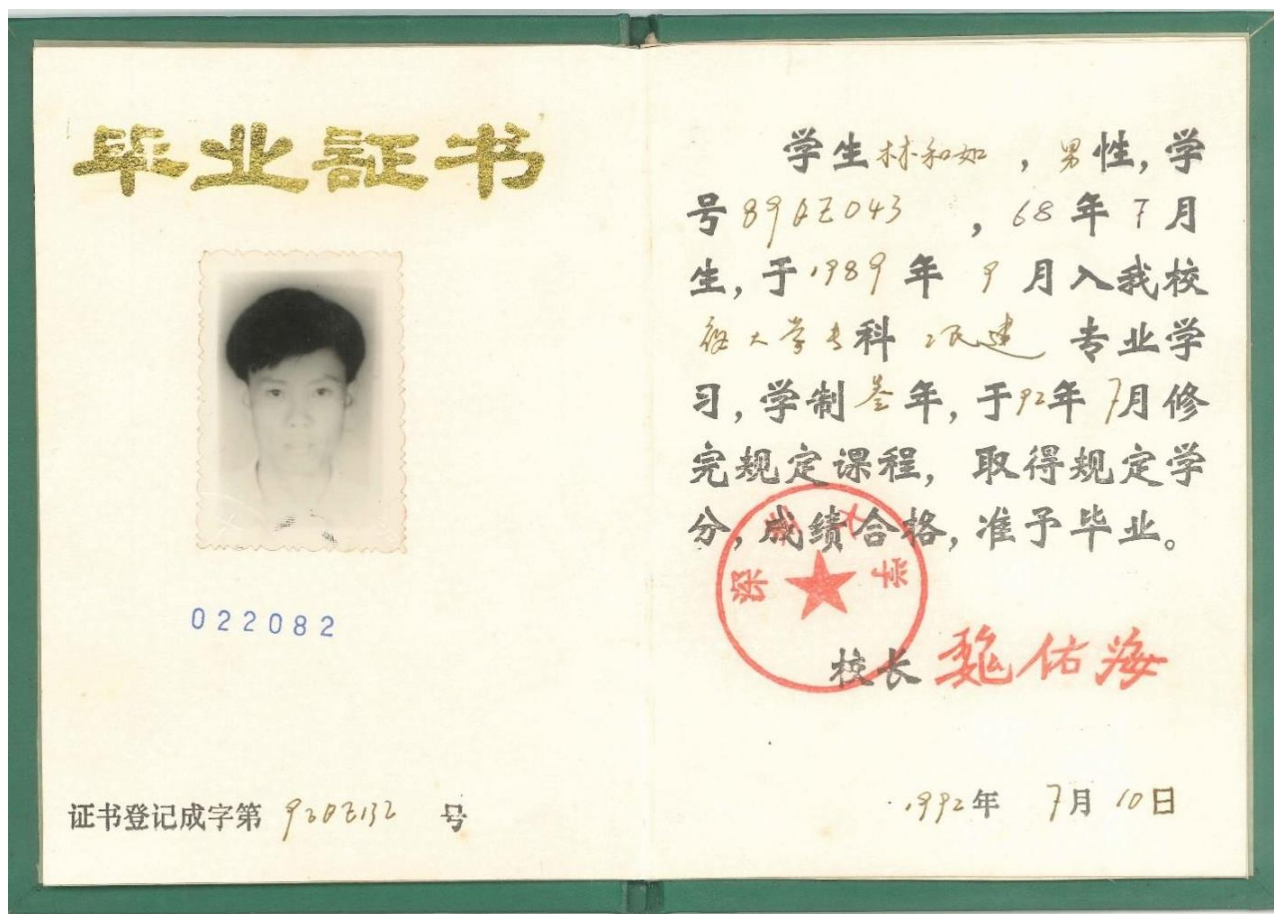 毕业証书
022082
证书登记成字第 92DZ132 号
学生林和如，男性，学
号 89DZ043，68年7月
生，于1989年 9月入我校
夜大学专科 工民建 专业学
习，学制叁年，于92年7月修
完规定课程，取得规定学
分，成绩合格，准予毕业。
深圳大学
校长 魏佑海
1992年 7月 10日